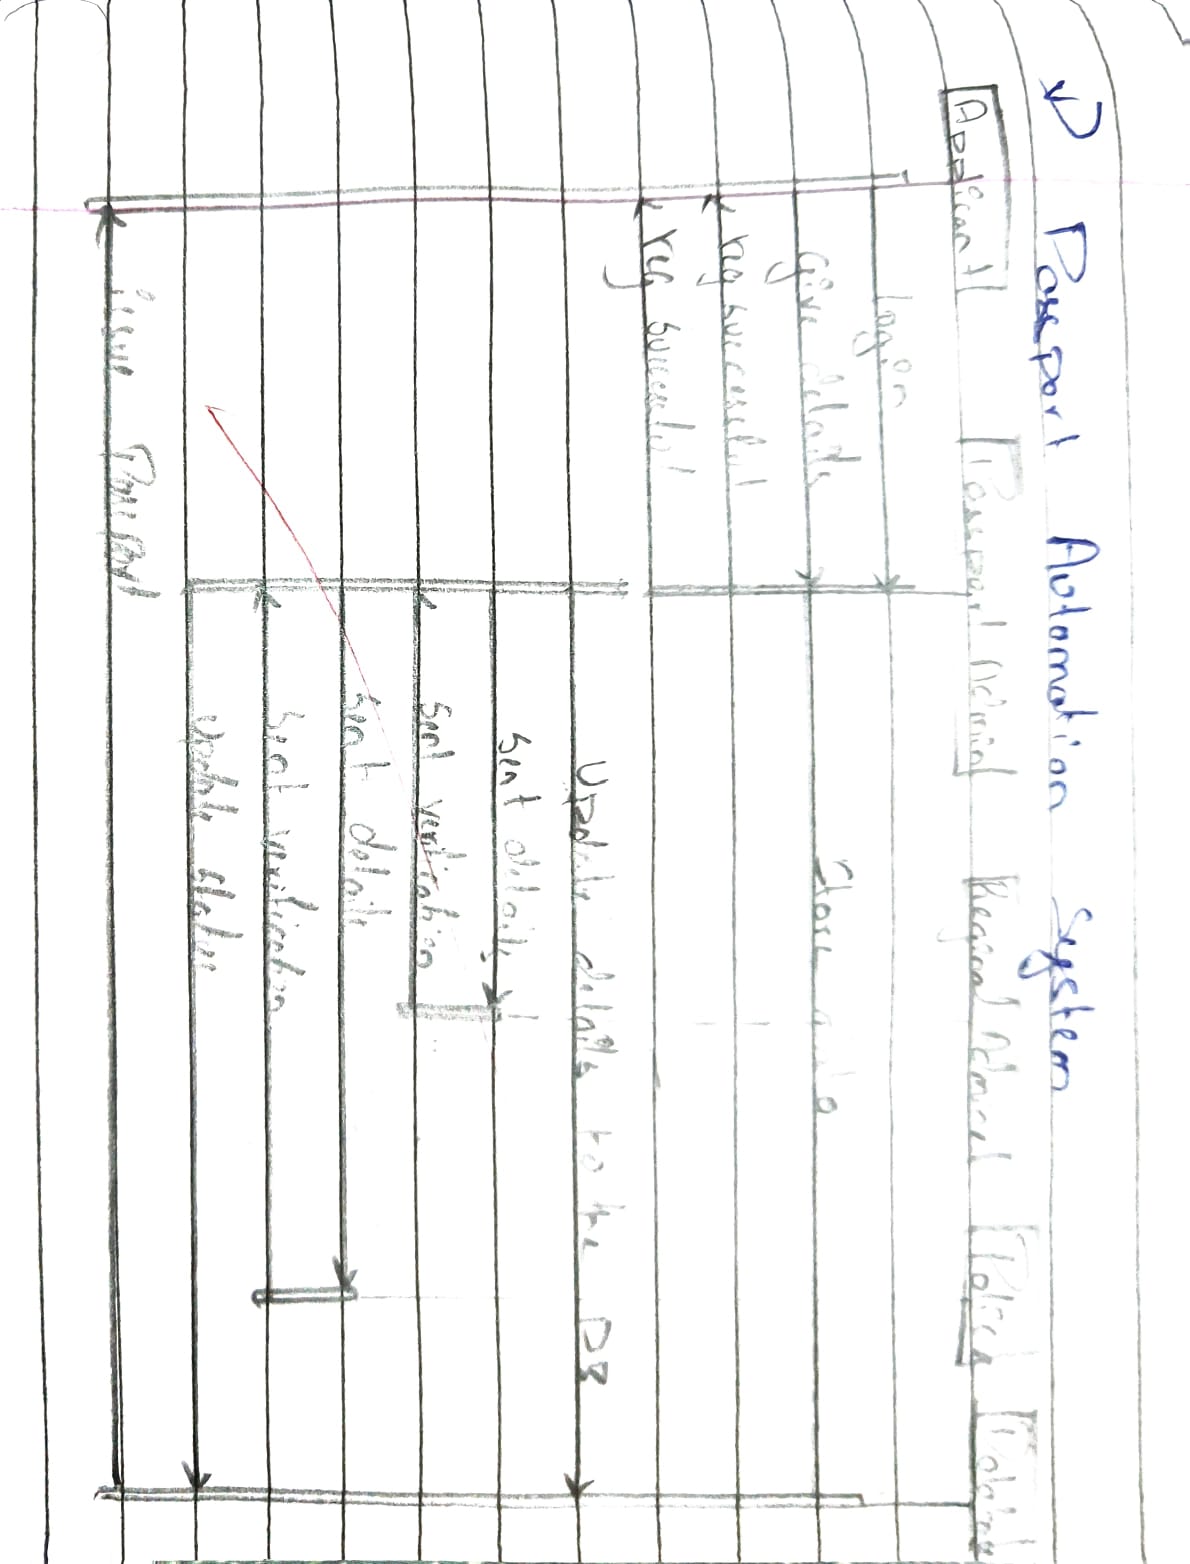 1) Passport Automation System
Applicant
Passport Admin
Regional Admin
Police
Database
login
Give details
Store data
reg successful
reg successful
Update details to the DB
sent details
sent verification
sent details
sent verification
update status
issue Passport